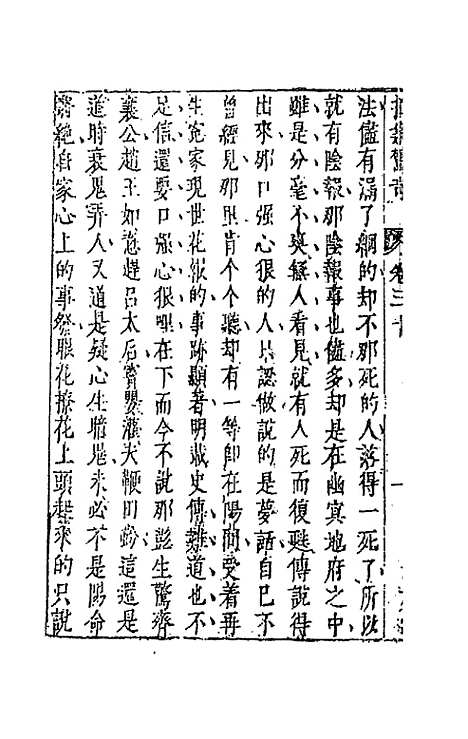 拍案驚奇 卷三十
法儘有漏了網的却不那死的人落得一死了所以
就有陰報那陰報事也儘多却是在幽冥地府之中
雖是分毫不爽無人看見就有人死而復甦傳說得
出來那口强心狠的人只認做說的是夢話自己不
曾經見那里肯个个聽却有一等即在陽間受着再
生寃家現世花報的事跡顯著明載史傳難道也不
足信還要口强心狠哩在下而今不說那彭生驚齊
襄公趙王如意趕呂太后竇嬰灌夫鞭田蚡這還是
道時衰鬼弄人又道是疑心生暗鬼未必不是陽命
將絕自家心上的事發眼花撩花上頭起來的只說